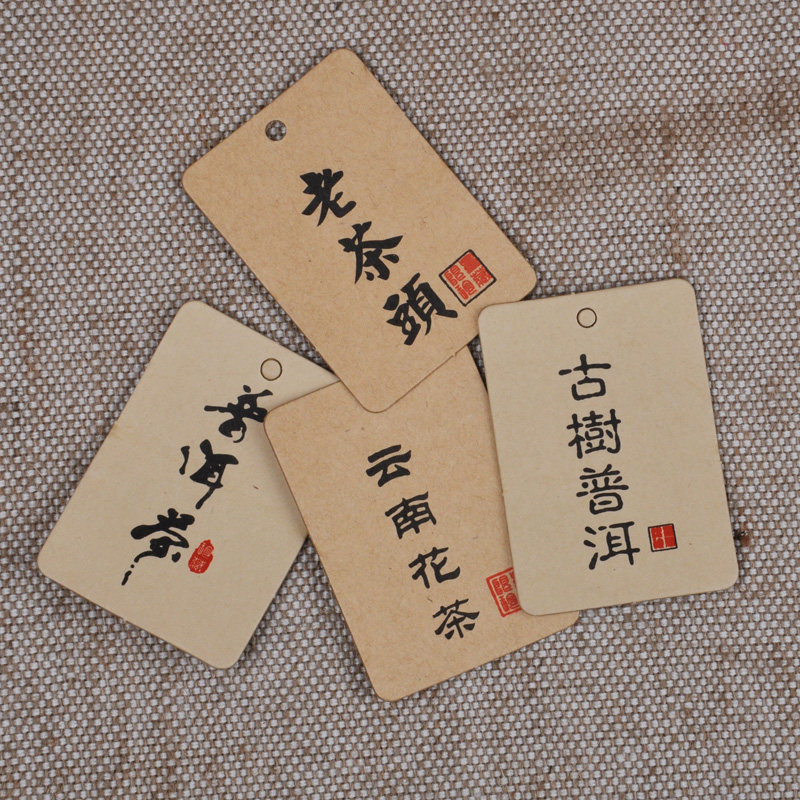 老茶頭
普洱茶
云南花茶
古樹普洱